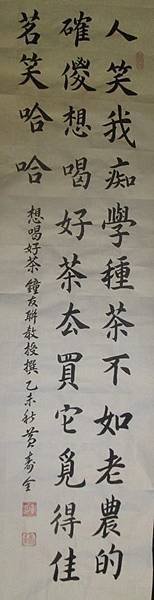 人笑我痴學種茶不如老農的
確傻想喝好茶太買它覓得佳
茗笑哈哈
想喝好茶 鐘友聯教授撰 乙未秋 黃壽全